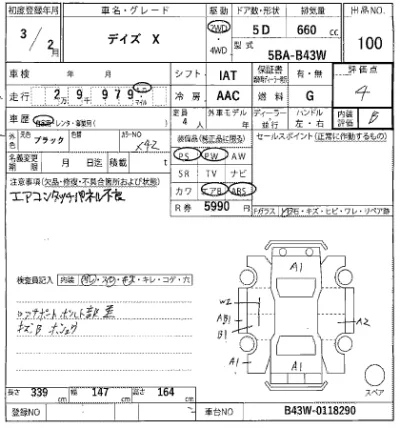 初度登録年月 車名・グレード 駆動 ドア数・形状 排気量 出品NO.
3/2月 デイズ X 2WD ・ 4WD 5D 660 cc 100
型式 5BA-B43W
車検 年 月 シフト IAT 保証書 有・無 評価点 4
走行 2万9千979 km マイル 冷房 AAC 燃料 G
車歴 自家用・レンタ・事業用( ) 定員 4人 外車モデル 年 ディーラー・並行 ハンドル 左・右 内装評価 B
外色 元色 ブラック 色替 カラーNO X42 装備品(純正品に限る) セールスポイント(正常に作動するもの)
名義変更期限 月 日迄 積載 t PS PW AW
注意事項(欠品・修復・不具合箇所および状態) SR TV ナビ
エアコンタッチパネル不良 カワ エアB ABS
R券 5990 円 Fガラス 飛石・キズ・ヒビ・ワレ・リペア跡
A1
検査員記入 内装 キレ・コゲ・穴
W2
AB1
B1
A2
A1
A1
スペア
長さ 339 cm 幅 147 cm 高さ 164 cm
登録NO 車台NO B43W-0118290